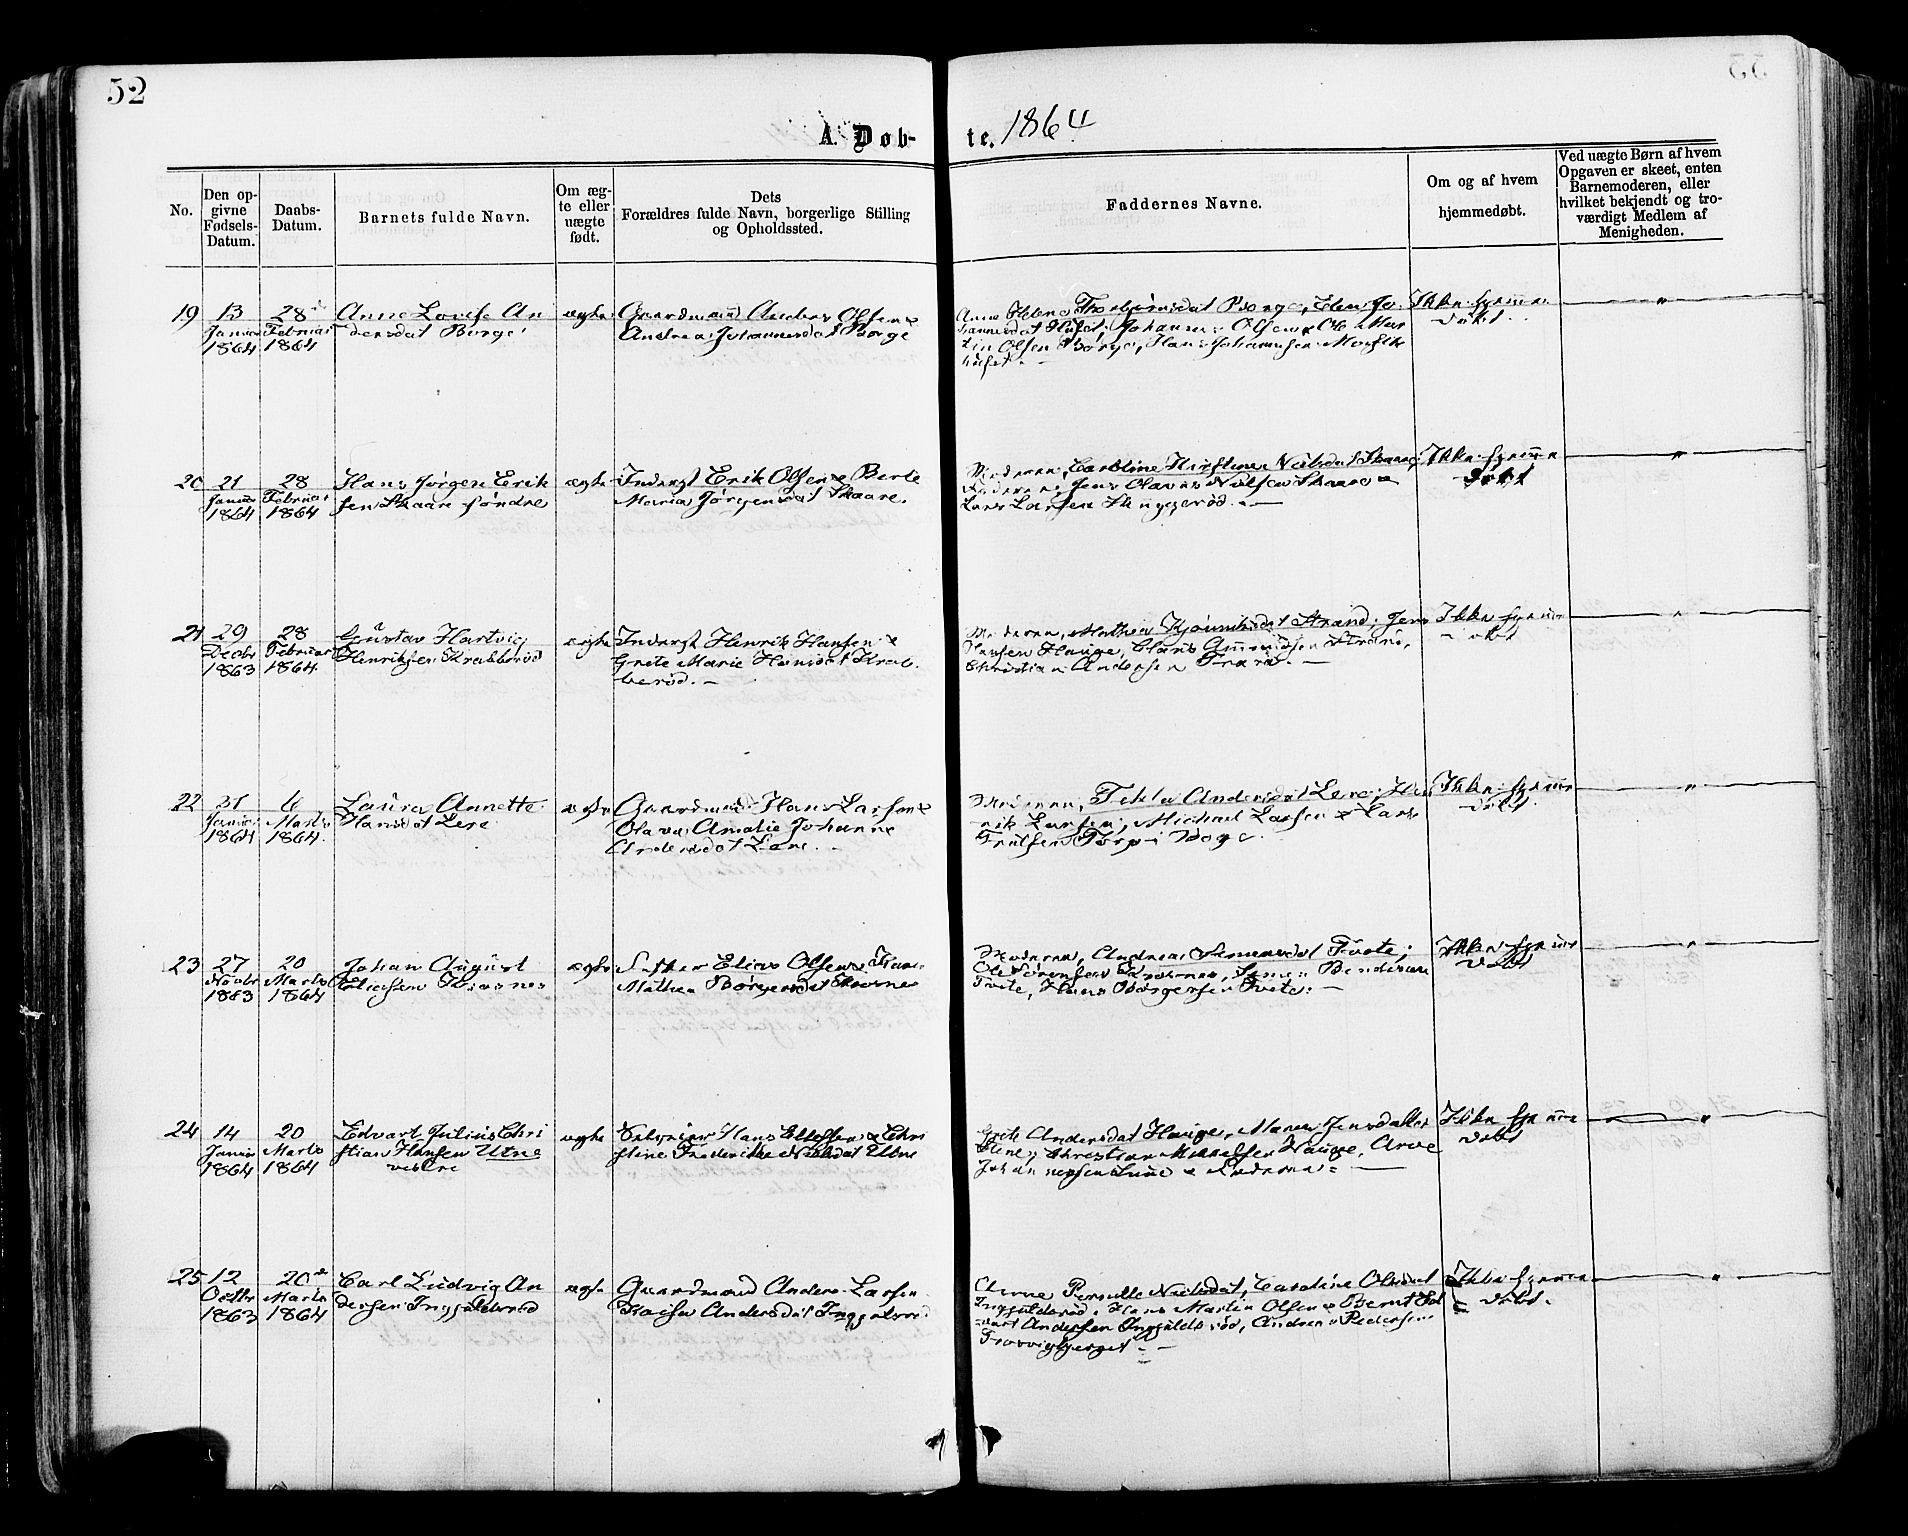 52
A. Døb-
te. 1864
No.
Den op-
givne
Fødsels-
Datum.
Daabs-
Datum.
Barnets fulde Navn.
Om æg-
te eller
uægte
født.
Dets
Forældres fulde Navn, borgerlige Stilling
og Opholdssted.
Faddernes Navne.
Om og af hvem
hjemmedøbt.
Ved uægte Børn af hvem
Opgaven er skeet, enten
Barnemoderen, eller
hvilket bekjendt og tro-
værdigt Medlem af
Menigheden.
19
13
Januar
1864
28
Februar
1864
Anne Lovise An
dersdat Borge
ægte
Gaardmand Anders Olsen &
Andrea Johannesdat Borge
Anne Helene Thorbjørnsdat Borge, Elen Jo-
hannesdat Huset, Johannes Olsen & Ole Mar
tin Olsen Borge, Hans Johannesen
huset.
Ikke hjemme
døbt.
20
21
Januar
1864
28
Februar
1864
Hans Jørgen Erik
sen Skaare søndre
ægte
Inderst Erik Olsen & Berte
Maria Jørgensdat Skaare.
Moderen, Caroline Kirstine Nilsdat Skaare,
Faderen, Jens Olavus Nilsen Skaare &
Lars Larsen
Ikke hjemme
døbt
21
29
Decbr
1863
28
Februar
1864
Gustav Hartvig
Henriksen Krabberød
ægte
Inderst Henrik Hansen &
Grete Marie Hansdat Krab-
berød.
Moderen, Mathea Strand, Jens
Hansen Hauge, Hans Amundsen Strand,
Christian Andersen
Ikke hjemme
døbt
22
31
Januar
1864
6
Marts
1864.
Laura Annette
Hansdat Lere
ægte
Gaardmand Hans Larsen &
Olava Amalie Johanne
Andersdat Lere.
Moderen, Tekla Andersdat Lere, Hen
rik Larsen, Michael Larsen & Lars
Trulsen Torp i Borge.
Ikke hjemme
døbt
23
27
Novbr
1863
20
Marts
1864
Johan August
Eliasen
ægte
Elias Olsen &
Mathea Børgersdat
Moderen, Andrea Simensdat Tvete,
Ole Sørensen Simen Bendixen
Tvete, Hans Børgersen Tvete.
Ikke hjemme
døbt
24
14
Januar
1864
20
Marts
1864
Edvart Julius Chri
stian Hansen Utne
vestre
ægte
Selveier Hans & Chri
stine Frederikke Nilsdat Utne
Grete Andersdat Hauge, Maren Jensdatter
Christian Mikkelsen Hauge, Arve
Johannesen & Faderen
Ikke hjemme
døbt
25
12
Octbr
1863
20
Marts
1864
Carl Ludvig An
dersen Inggulsrød
ægte
Gaardmand Anders Larsen
Andersdat Inggulsrød
Anne Pernille Nielsdat, Caroline Olsdat
Inggulsrød, Hans Martin Olsen & Bernt Ed
vart Andersen Inggulsrød, Andreas Pedersen
Ikke hjemme
døbt.